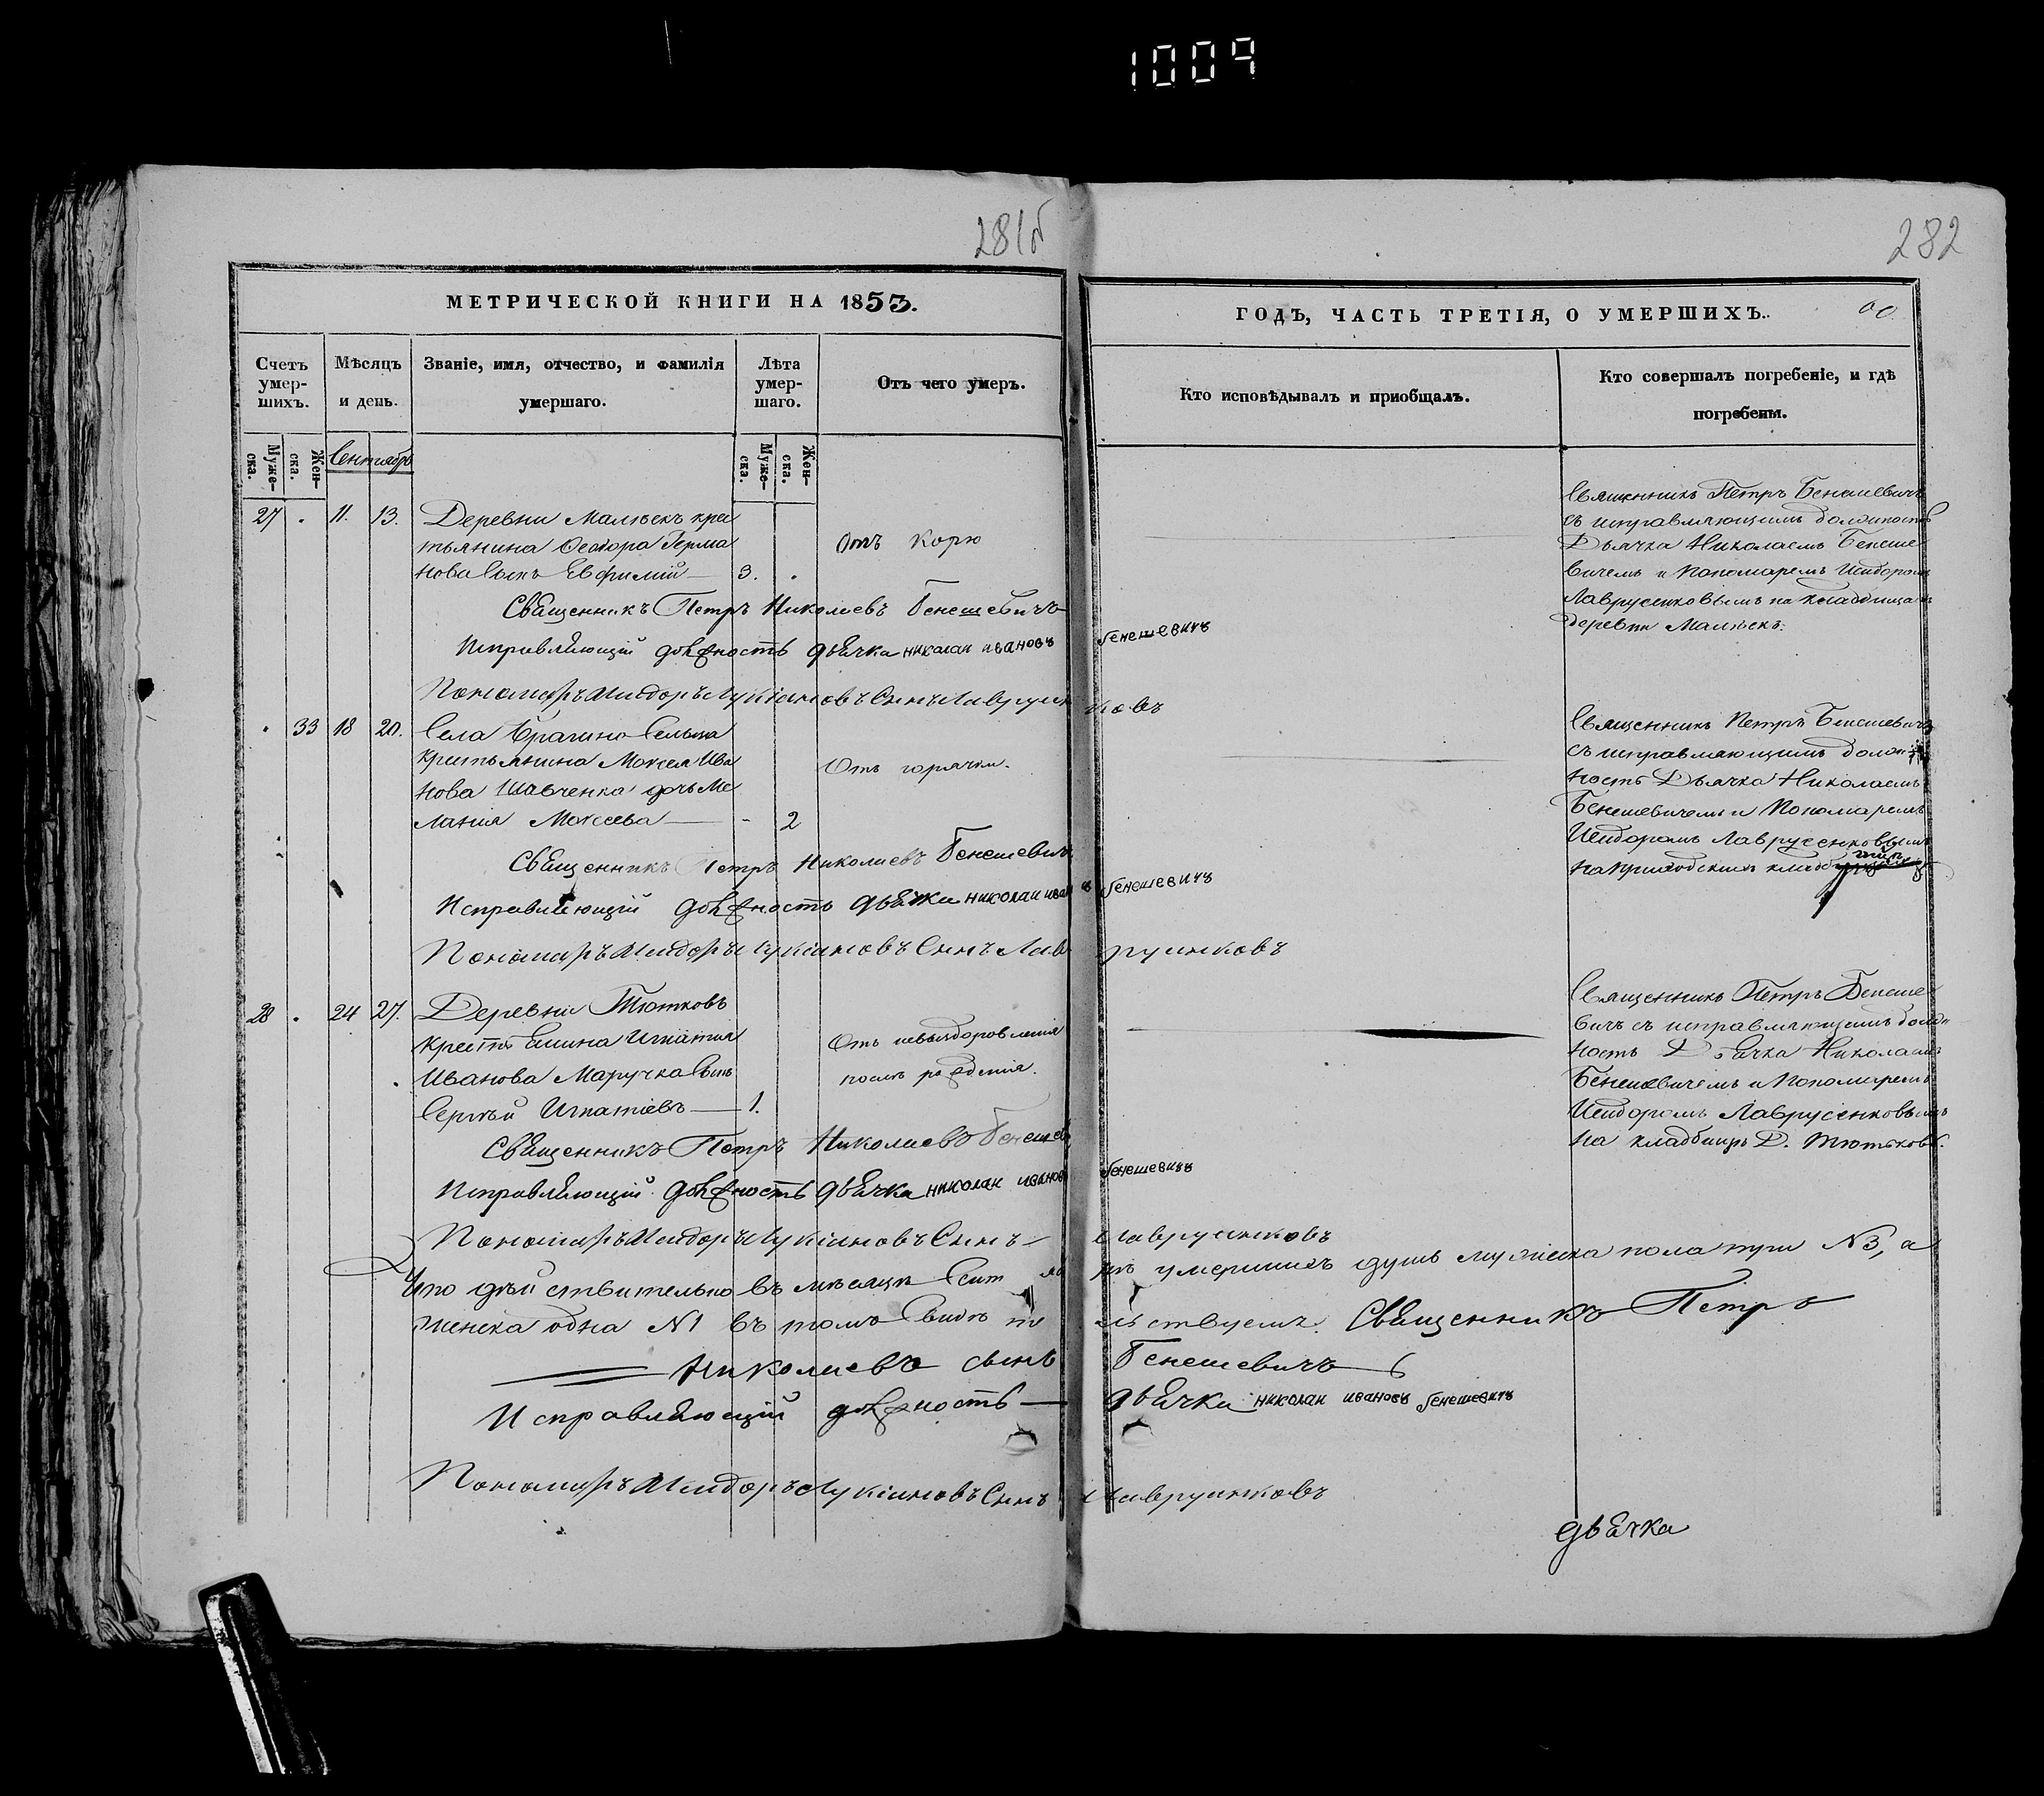 1009
281б
282
МЕТРИЧЕСКОЙ КНИГИ НА 1853.
Счетъ умер-шихъ.
Мѣсяцъ и день.
Званіе, имя, отчество, и фамилія умершаго.
Лѣта умер-шаго.
Отъ чего умеръ.
Муже-ска.
Жен-ска.
Сентябрь
Муже-ска.
Жен-ска.
27 . 11. 13. Деревни Малѣекъ крес
тьянина Ѳеодора Герма
нова Сынъ Евфимій — 3. .
Отъ Корю
Священникъ Петръ Николаевъ Бенешевичъ
Исправляющій должность дьячка николай ивановъ бенешевичъ
Пономарь Исидоръ Лукіановъ Сынъ Лаврусенковъ
. 33 18 20. Села Брагино Сельца
Крестьянина Моисея Ива
нова Шавченка дочь Ме
ланія Моисеева — - 2
Отъ горячки.
Священникъ Петръ Николаевъ Бенешевичъ
Исправляющій должность дьячка николай иванъ бенешевичъ
Пономарь Исидоръ Лукіановъ Сынъ Лаврусенковъ
28 . 24 27. Деревни Тютковъ
Крестьянина Игнатія
Иванова Маручка Сынъ
Сергѣй Игнатіевъ — 1.
Отъ невыздоровленія
послѣ рождения.
Священникъ Петръ Николаевъ Бенешев
Исправляющій должность дьячка николай иванов бенешевичъ
Пономарь Исидоръ Лукіановъ Сынъ Лаврусенковъ
Что дѣйствительно въ мѣсяцѣ Сентябрѣ умершихъ душъ мужеска пола три №3, а
женска одна №1 въ томъ Свидѣтельствуемъ. Священникъ Петръ
Николаевъ сынъ Бенешевичъ
Исправляющій должность — дьячка николай ивановъ бенешевичъ
Пономарь Исидоръ Лукіановъ Сынъ Лаврусенковъ
ГОДЪ, ЧАСТЬ ТРЕТІЯ, О УМЕРШИХЪ.
Кто исповѣдывалъ и пріобщалъ.
Кто совершалъ погребеніе, и гдѣ погребены.
Священникъ Петръ Бенешевичъ
съ исправляющимъ должность
Дьячка Николаемъ Бенеше
вичемъ и Пономаремъ Исидоромъ
Лаврусенковымъ на кладбищѣ
деревни Малѣекъ.
Священникъ Петръ Бенешевичъ
съ исправляющимъ долж
ность Дьячка Николаемъ
Бенешевичемъ и Пономаремъ
Исидоромъ Лаврусенковымъ
на приходскомъ
Священникъ Петръ Бенеше
вичъ съ исправляющимъ долж
ность Дьячка Николаемъ
Бенешевичемъ и Пономаремъ
Исидоромъ Лаврусенковымъ
на кладбищѣ Д. Тютьковъ.
дьячка